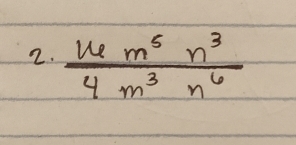 2. 16 m⁵ n³
4 m³ n⁶